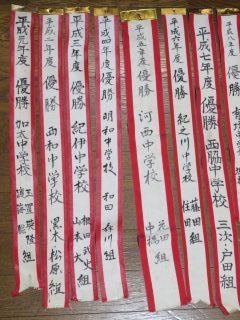 平成元年度 優勝 加太中学校
平成二年度 優勝 西和中学校 黒木 松原 組
平成三年度 優勝 紀伊中学校 根田 武史 山本 大 組
平成四年度 優勝 明和中学校 和田 森川 組
平成五年度 優勝 河西中学校 花田 中橋 組
平成六年度 優勝 紀之川中学校 藤田 住田 組
平成七年度 優勝 西脇中学校 三次・戸田 組
平成八年度 優勝